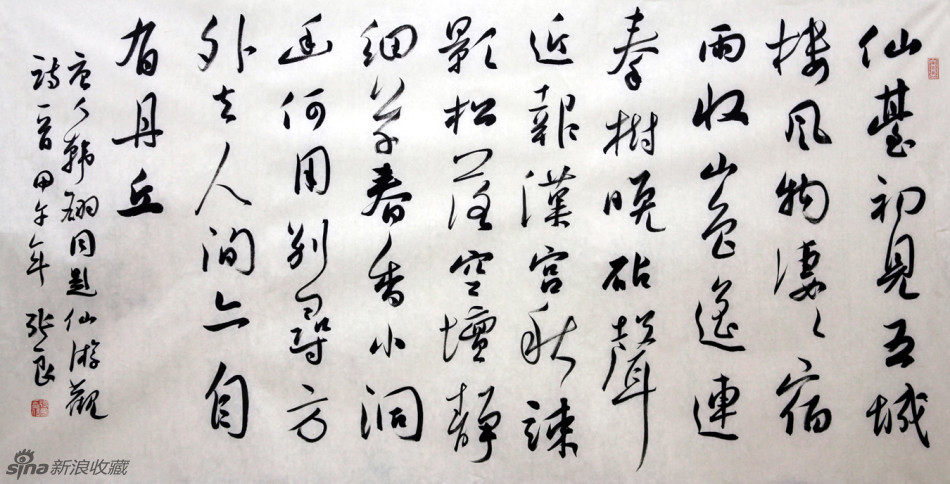 仙臺初見五城
樓風物淒々宿
雨收山色遙連
秦樹晚砧聲
近報漢宮秋疎
影松落空壇靜
細草春香小洞
幽何用别尋方
外去人间亦自
有丹丘
唐人韩翃同題仙游觀
詩一首甲午年 张良
sina新浪收藏